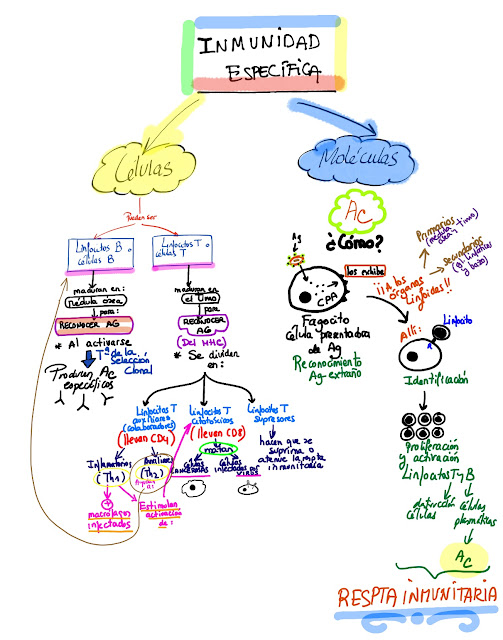 INMUNIDAD
ESPECÍFICA
Células
Moléculas
Pueden ser
Linfocitos B o
células B
Linfocitos T o
células T
maduran en:
médula ósea
para:
RECONOCER AG
* Al activarse
Tª de la
Selección
Clonal
Producen Ac
específicos
maduran en:
el timo
para:
RECONOCER
AG
(Del MHC)
* Se dividen
en:
Linfocitos T
auxiliares
(colaboradores)
(llevan CD4)
Linfocitos T
citotóxicos
(llevan CD8)
matan
Células
cancerosas
Células
infectadas por
virus
Linfocitos T
supresores
hacen que se
suprima o
atenúe la respta
inmunitaria
Inflamatorios
(Th1)
(Th2)
+
macrófagos
infectados
Estimulan
activación
de:
Ac
¿Cómo?
Ag
CPA
los exhibe
Fagocito
Célula presentadora
de Ag
Reconocimiento
Ag-extraño
¡¡A los
órganos
linfoides!!
Primarios
(médula
ósea y timo)
Secundarios
(g. linfáticos
y bazo)
Allí:
Linfocito
Identificación
Proliferación
y activación
Linfocitos T y B
células
Células
plasmáticas
Ac
RESPTA INMUNITARIA